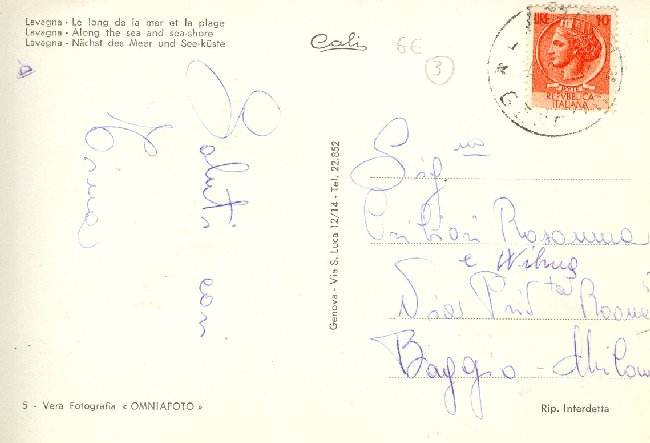 Lavagna - Le long de la mer et la plage
Lavagna - Along the sea and sea-shore
Lavagna - Nächst des Meer und See-küste
Cali
6€
3
LIRE 10
POSTE
REPVBBLICA
ITALIANA
Saluti cari
Genova - Via S. Luca 12/14 - Tel. 22.852
Sig.na
Rosanna
e Wilma
Baggio - Milano
5 - Vera Fotografia « OMNIAFOTO »
Rip. Interdetta